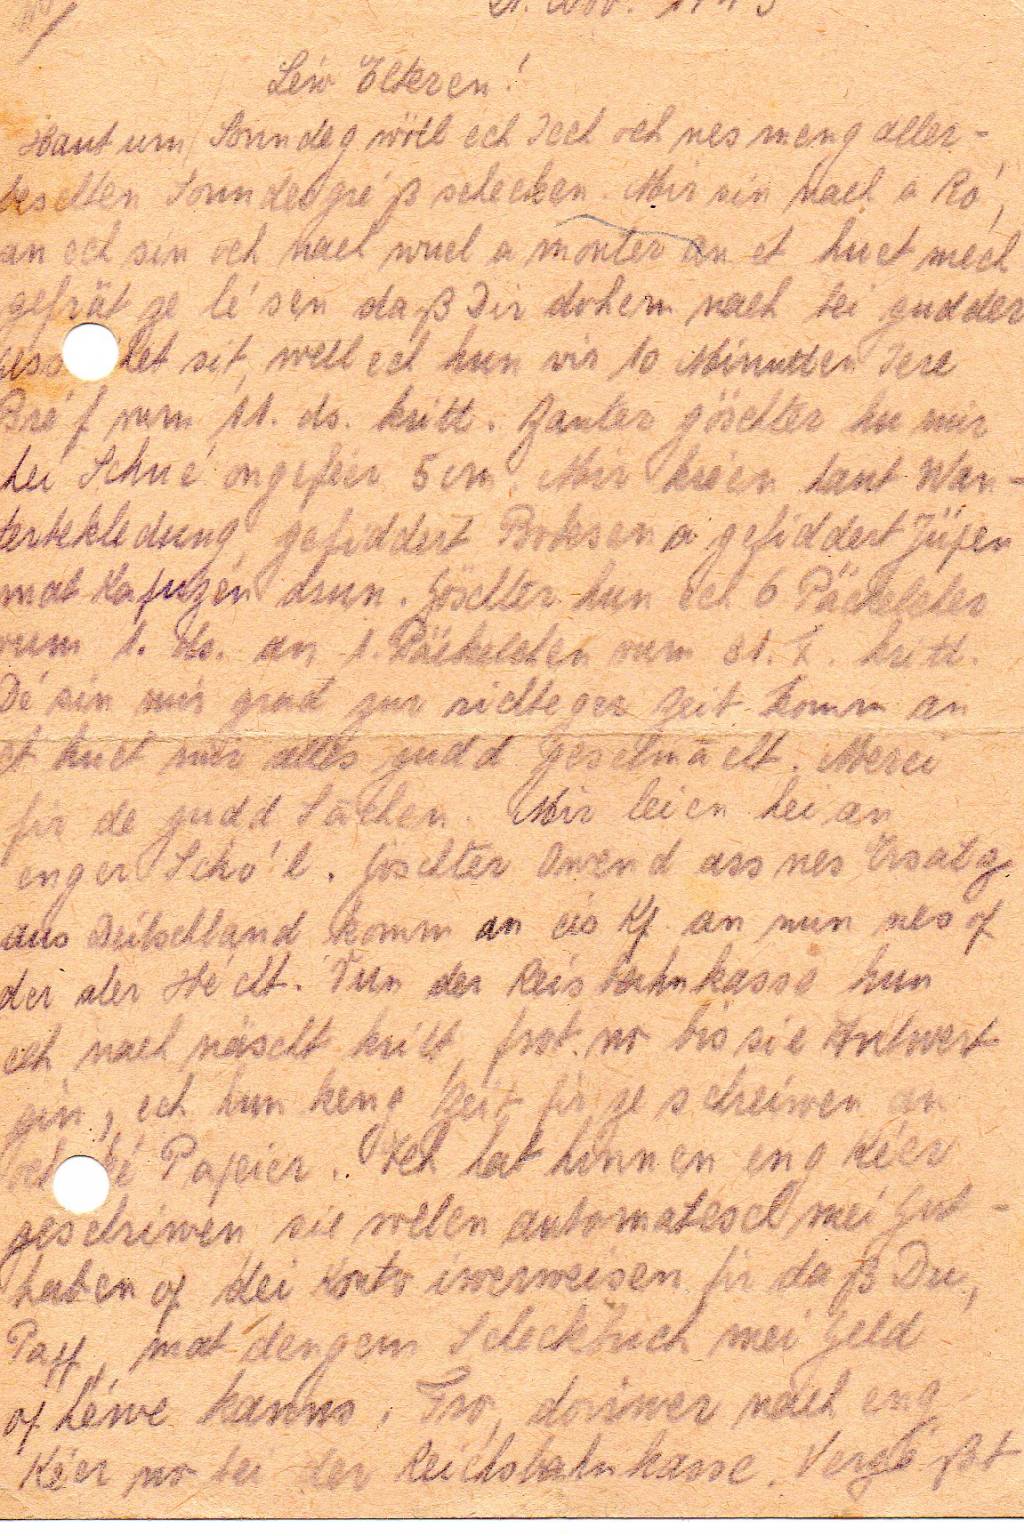 21. Nov. 1943
Leiw Elteren!
Haut um Sonndeg wöll ech Iech och nes meng aller-
beschten Sonndesgréiß schecken. Mir sin nach a Ro',
an ech sin och nach wuel a monter an et huet mech
gefrät ze lé'sen daß Dir dohem nach bei gudder
Gesondhet sit, well ech hun vir 10 Minutten Iere
Bré'f vum 11. ds. kritt. Zanter göschter hu mir
hei Schné ongeféir 5 cm. Mir kréien haut Wan-
terbekledung, gefiddert Boksen a gefiddert Jüpen
mat Kapuzen drun. Göschter hun ech 6 Päckelcher
vum 1. ds. an 1 Päckelchen vum 31. X. kritt.
Dé sin mir grad zur richteger Zeit komm an
et huet mir alles gudd geschmācht. Merci
fir de gudd Sāchen. Mir leien hei an
enger Scho'l. Göschter Owend ass nes Ersatz
aus Deitschland komm an eis Kp. an nun nes of
der aler Hé'cht. Vun der Reisbahnkasse hun
ech nach näischt kritt, frot no bis sie Äntwert
gin, ech hun keng Zeit fir ze schreiwen an
och ké Papeier. Ech hat hinnen eng Kéer
geschriwen sie selen automatesch méi Gut-
haben of déi Konto iwerweisen fir daß Du,
Papp, mat dengem Scheckbuch mei Geld
of hé'we kanns. Fro, doriwer nach eng
Kéer no bei der Reichsbahnkasse. Vergé'ßt